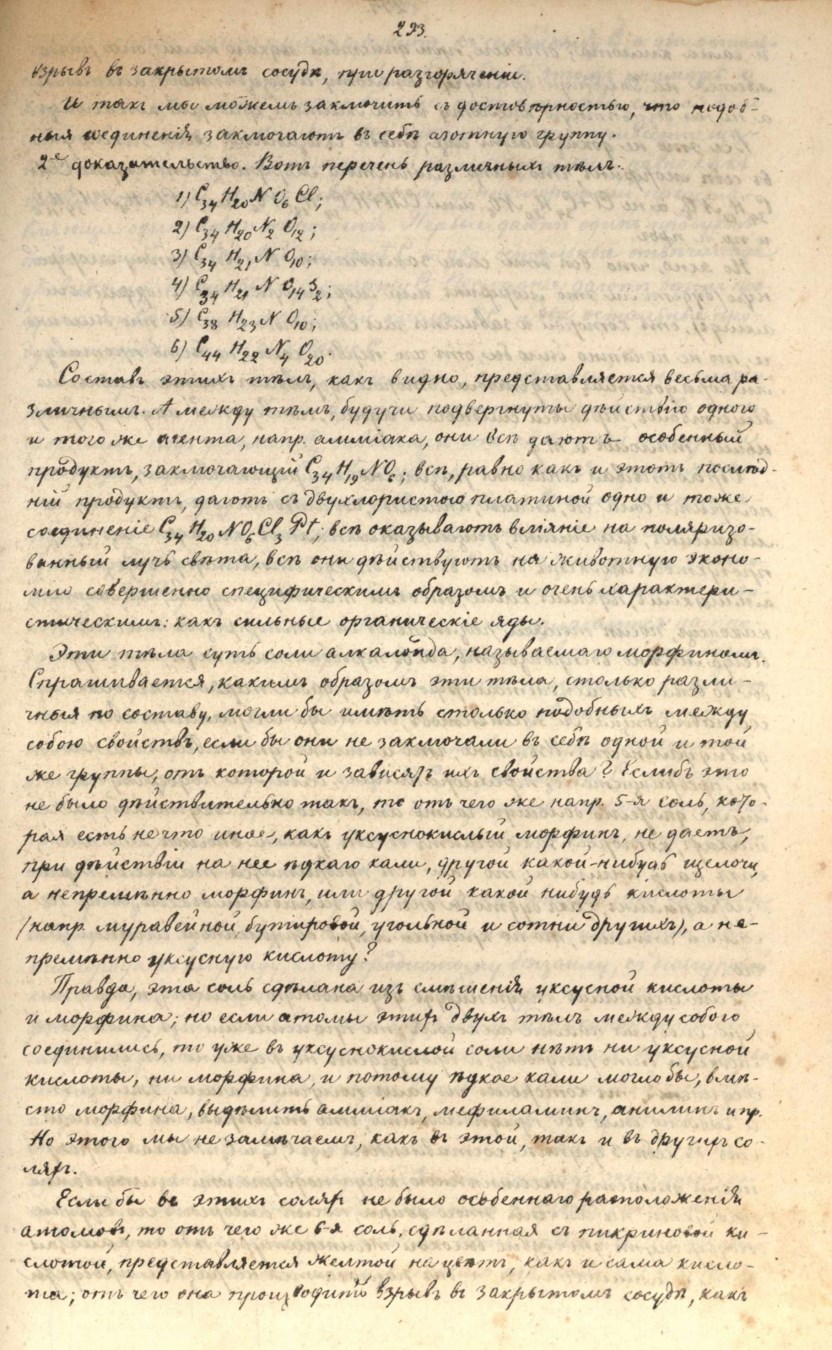 293.
взрывъ въ закрытомъ сосудѣ, при разгоряченіи.
И такъ мы можемъ заключить съ достовѣрностью, что подоб-
ныя соединенія заключаютъ въ себѣ азотную группу.
2е доказательство. Вотъ перечень различныхъ тѣлъ.
1) C34 H20 N O6 Cl;
2) C34 H20 N2 O12;
3) C34 H21 N O10;
4) C34 H21 N O14 S2;
5) C38 H23 N O10;
6) C44 H22 N4 O20.
Составъ этихъ тѣлъ, какъ видно, представляется весьма ра-
зличнымъ. А между тѣмъ, будучи подвергнуты дѣйствію одного
и того же агента, напр. амміака, они всѣ даютъ особенный
продуктъ, заключающій C34 H19 NO6; всѣ, равно какъ и этотъ послѣд-
ній продуктъ, даютъ съ двухлористою платиной одно и тоже
соединеніе C34 H20 NO6 Cl3 Pt; всѣ оказываютъ вліяніе на поляризо-
ванный лучъ свѣта, всѣ они дѣйствуютъ на животную эконо-
мію совершенно специфическимъ образомъ и очень характери-
стическимъ: какъ сильные органическіе яды.
Эти тѣла суть соли алкалоида, называемаго морфиномъ.
Спрашивается, какимъ образомъ эти тѣла, столько разли-
чныя по составу, могли бы имѣть столько подобныхъ между
собою свойствъ, если бы они не заключали въ себѣ одной и той
же группы, отъ которой и зависятъ ихъ свойства? Еслибъ это
не было дѣйствительно такъ, то отъ чего же напр. 5-я соль, кото-
рая есть не что иное, какъ уксуснокислый морфинъ, не даетъ,
при дѣйствіи на нее ѣдкаго кали, другой какой-нибудь щелочи,
а непремѣнно морфинъ, или другой какой нибудь кислоты
(напр. муравейной, бутировой, угольной и сотни другихъ), а не-
премѣнно уксусную кислоту?
Правда, эта соль сдѣлана изъ смѣшенія уксусной кислоты
и морфина; но если атомы этихъ двухъ тѣлъ между собою
соединились, то уже въ уксуснокислой соли нѣтъ ни уксусной
кислоты, ни морфина, и потому ѣдкое кали могло бы, вмѣ-
сто морфина, выдѣлить амміакъ, мефиламинъ, анилинъ и пр.
Но этого мы не замѣчаемъ, какъ въ этой, такъ и въ другихъ со-
ляхъ.
Если бы въ этихъ соляхъ не было особеннаго расположенія
атомовъ, то отъ чего же 6-я соль, сдѣланная съ пикриновой ки-
слотой, представляется желтой на цвѣтъ, какъ и сама кисло-
та; отъ чего она производитъ взрывъ въ закрытомъ сосудѣ, какъ